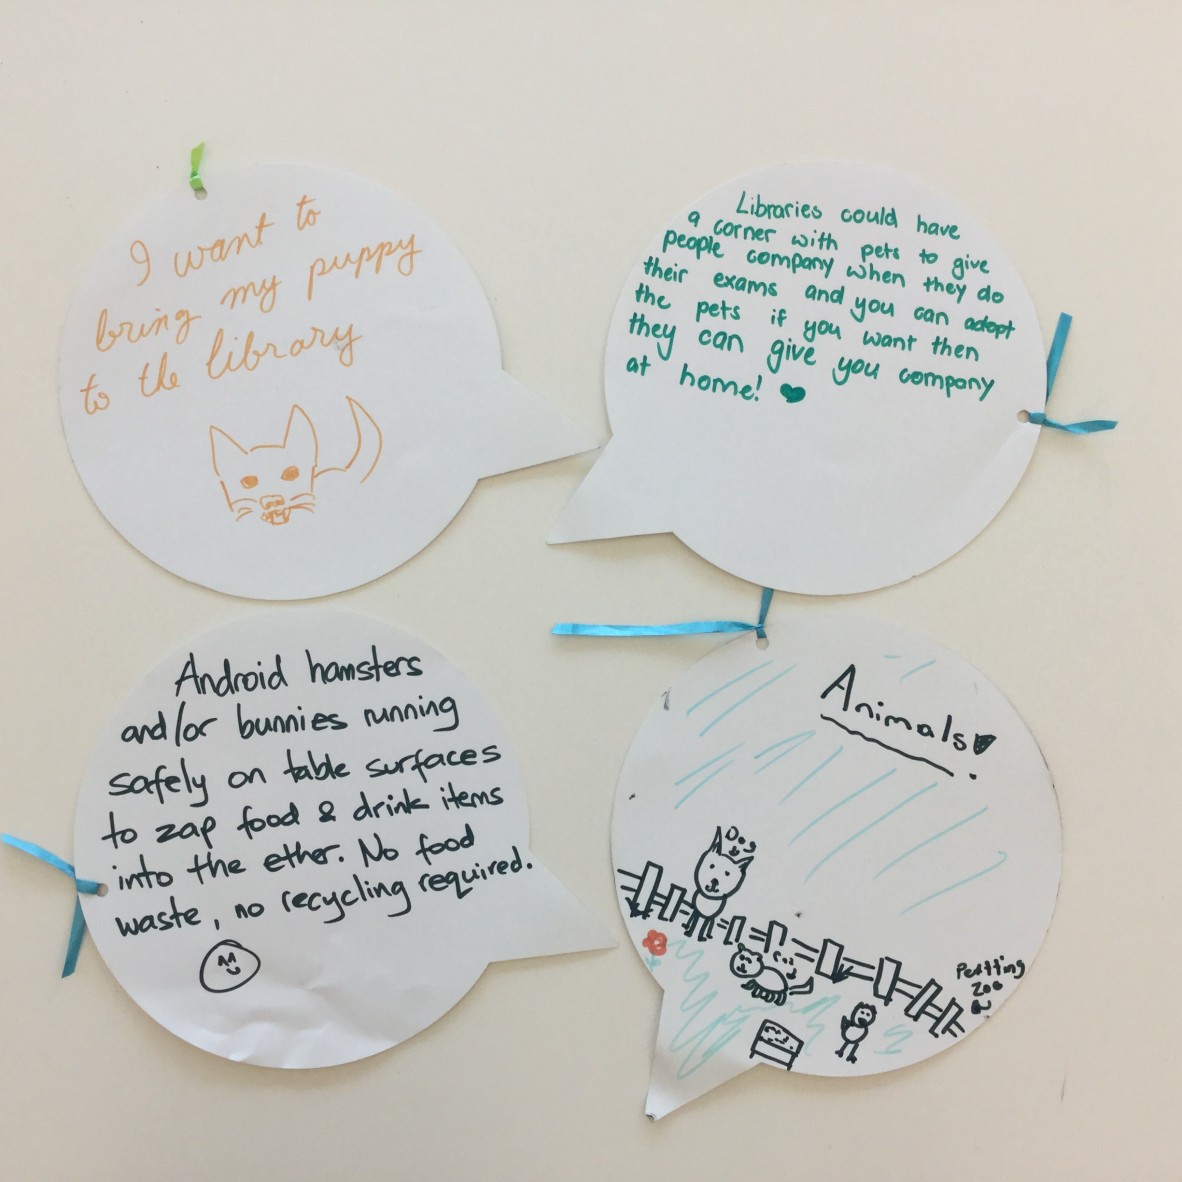 I want to
bring my puppy
to the library
Libraries could have
a corner with pets to give
people company when they do
their exams and you can adopt
the pets if you want then
they can give you company
at home!
Android hamsters
and/or bunnies running
safely on table surfaces
to zap food & drink items
into the ether. No food
waste, no recycling required.
Animals
Dog
Pettting
Zoo